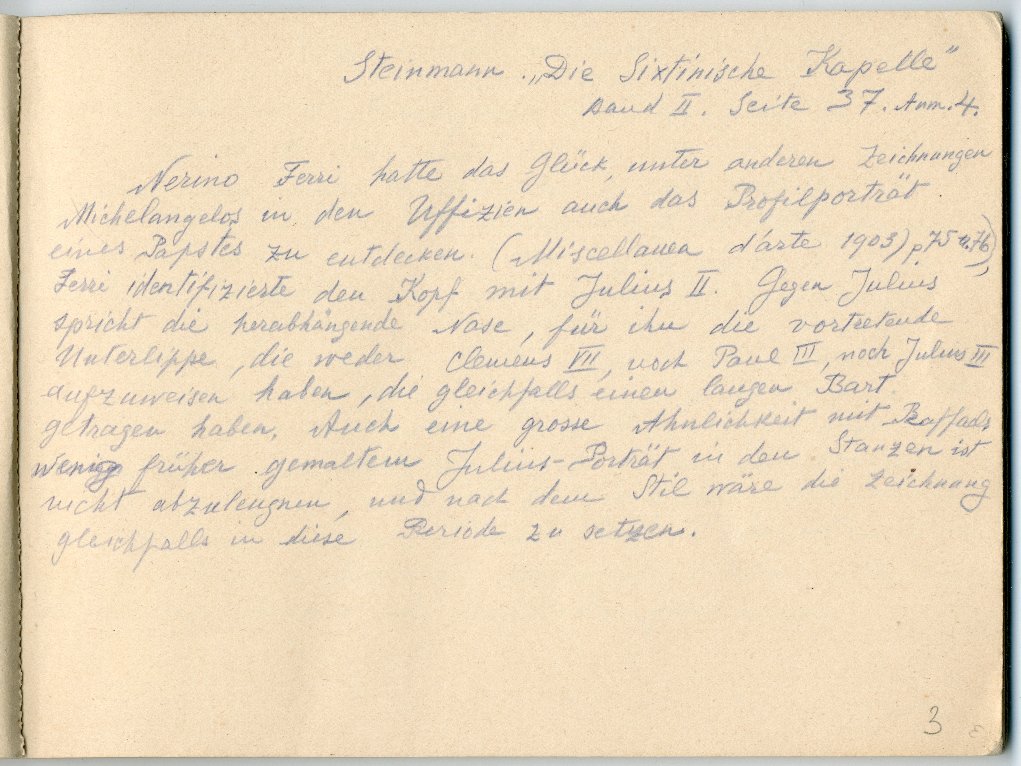 Steinmann. „Die Sixtinische Kapelle"
Band II. Seite 37. Anm. 4.
Nerino Ferri hatte das Glück, unter anderen Zeichnungen
Michelangelos in den Uffizien auch das Profilporträt
eines Papstes zu entdecken. (Miscellanea d'arte 1903) p 75 u. 76),
Ferri identifizierte den Kopf mit Julius II. Gegen Julius
spricht die herabhängende Nase, für ihn die vortretende
Unterlippe, die weder Clemens VII, noch Paul III, noch Julius III
aufzuweisen haben, die gleichfalls einen langen Bart
getragen haben. Auch eine grosse Ähnlichkeit mit Raffaels
wenig früher gemaltem Julius-Porträt in den Stanzen ist
nicht abzuleugnen, und nach dem Stil wäre die Zeichnung
gleichfalls in diese Periode zu setzen.
3